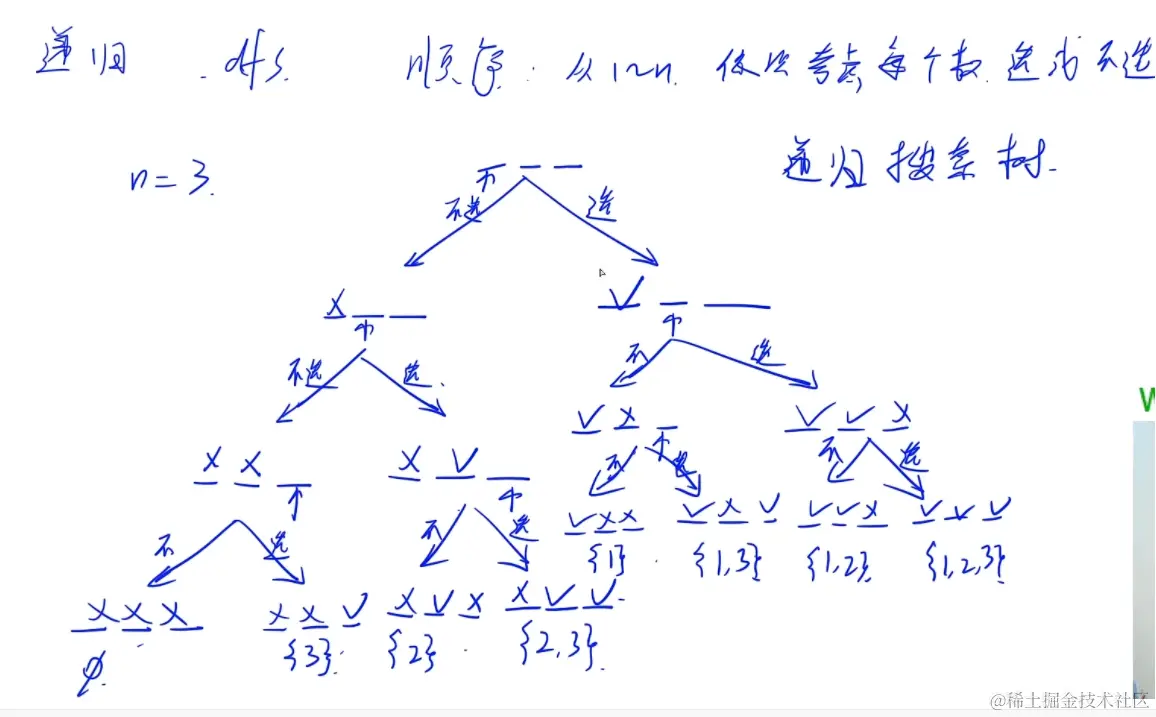 递归 . dfs. 顺序: 从1~n. 依次考虑每个数 选或不选
n=3.
递归搜索树.
不选 选
X
V
不选 选. 不 选
V X
V V X
X X
X V
不 选 不 选
不 选 不 选
V X X V X V V V X V V V
{1} . {1,3} {1,2} {1,2,3}
X X X X X V X V X X V V
∅. {3}. {2} . {2,3}.
W
@稀土掘金技术社区